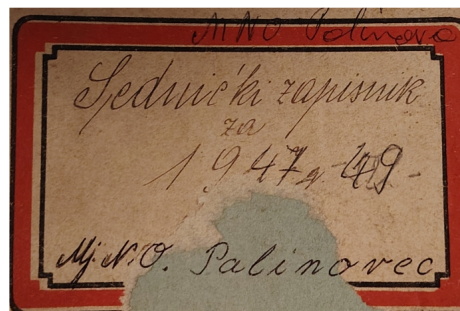 MNO Palinovec
Sjednički zapisnik
za
1947 g - 49 -
Mj. N. O. Palinovec